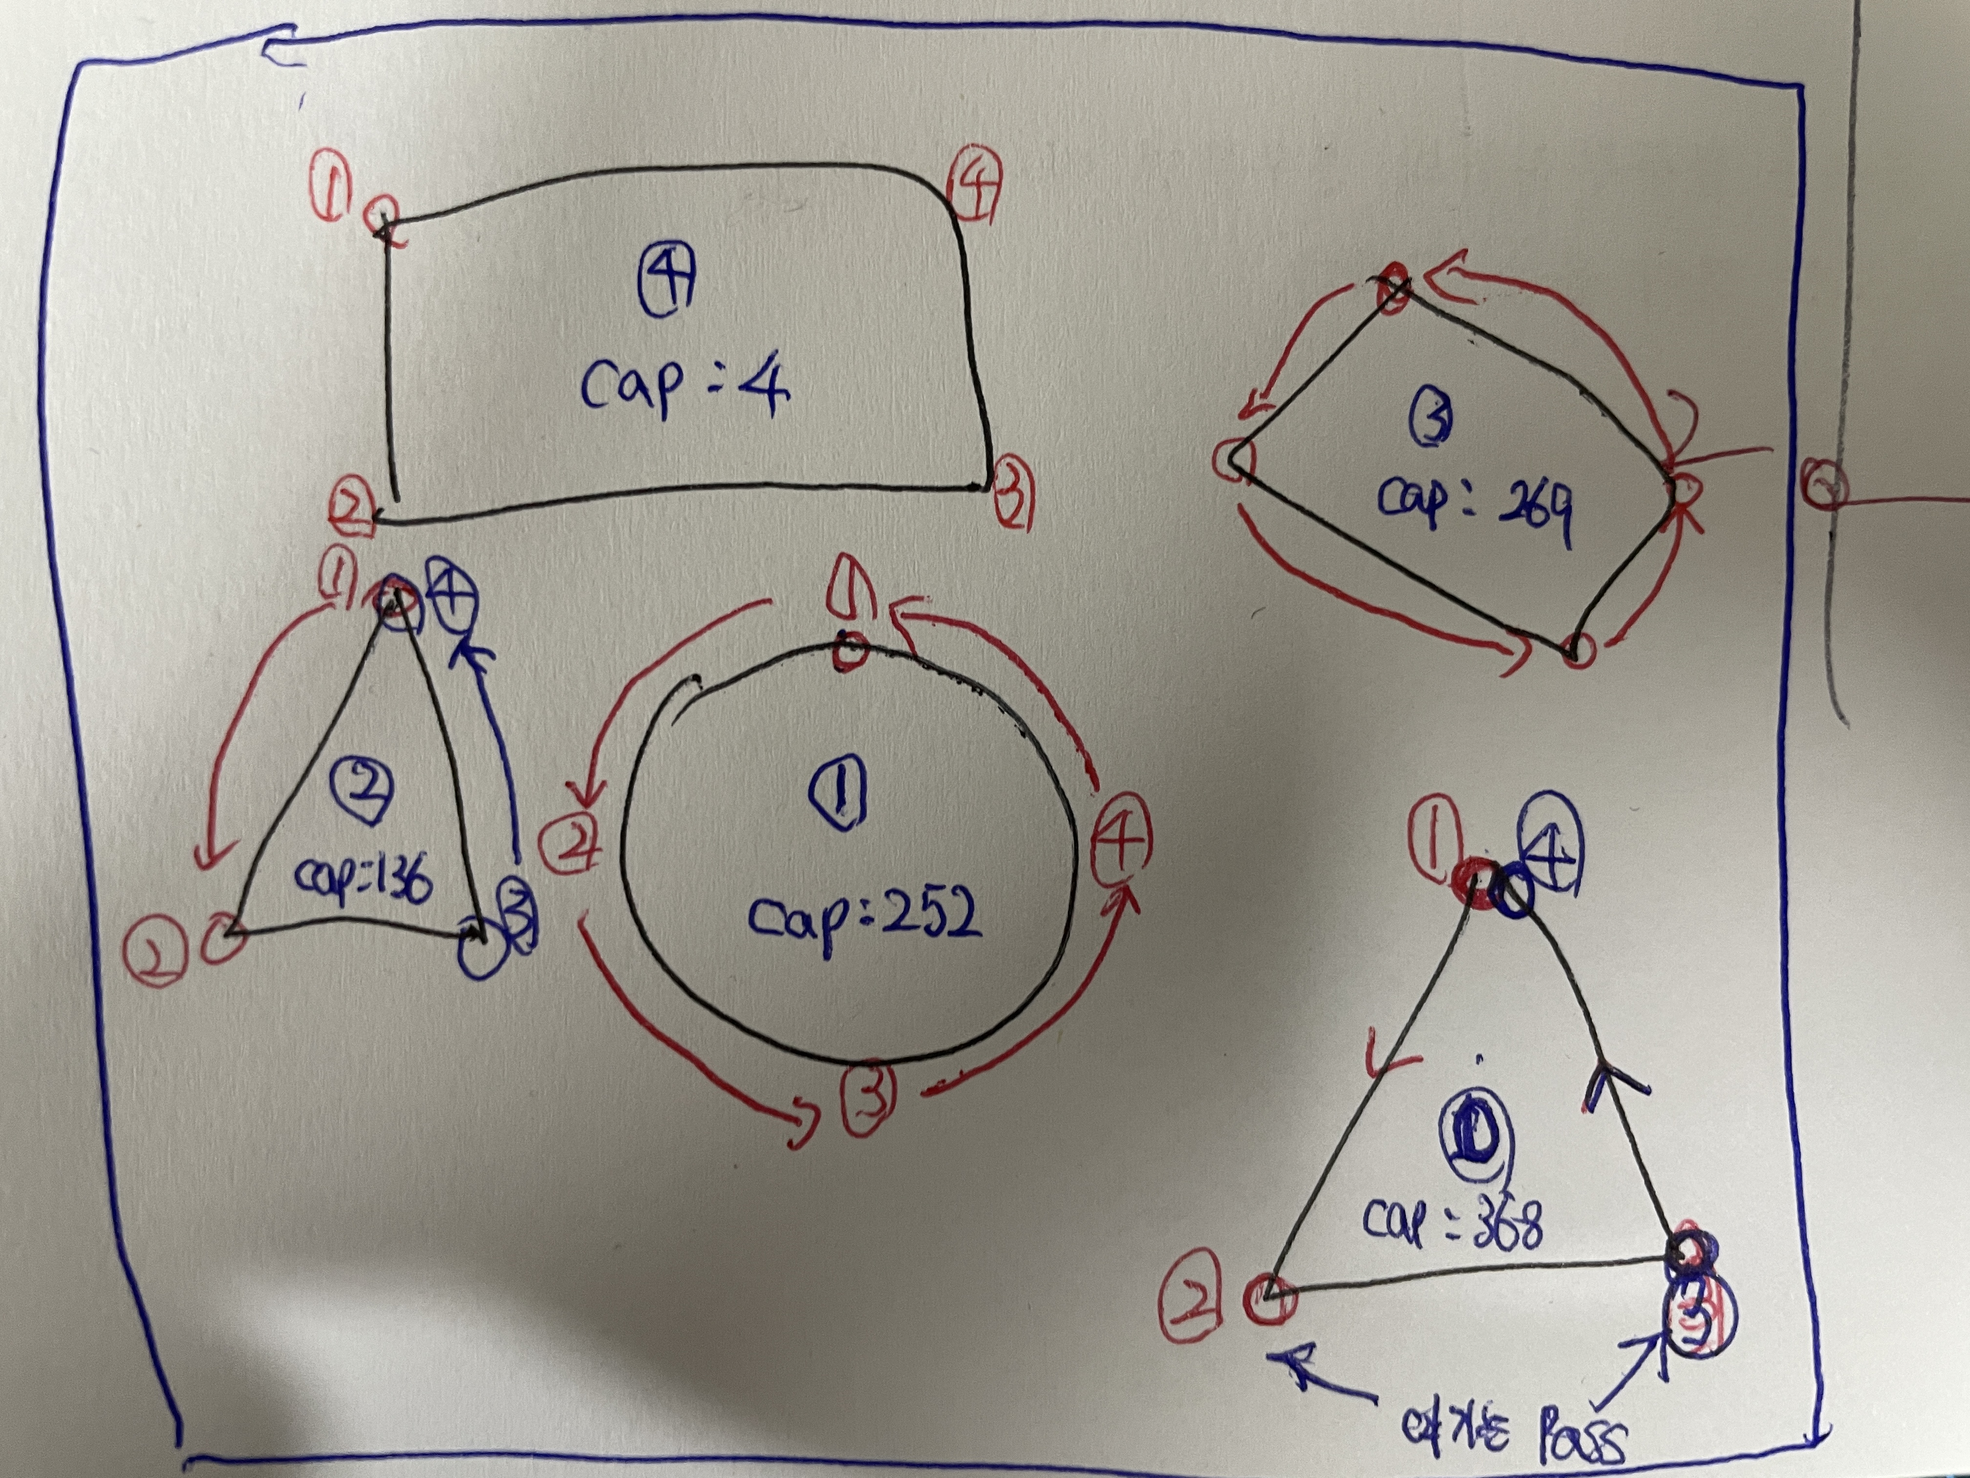 ① ④
④
cap:4
② ③
③
cap: 269
① ④
②
cap:136
② ③
①
① 
cap:252
② ④
③
① ④
cap:368
② ③
Pass